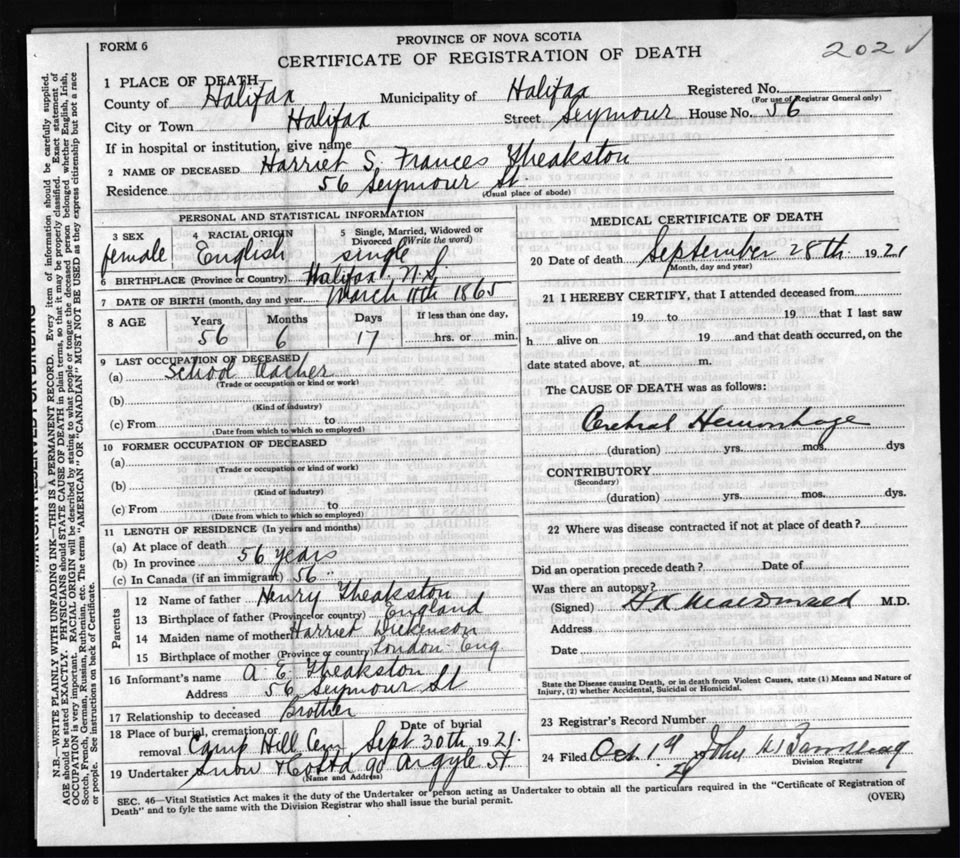 202 ✓
FORM 6
PROVINCE OF NOVA SCOTIA
CERTIFICATE OF REGISTRATION OF DEATH
1 PLACE OF DEATH—
County of Halifax Municipality of Halifax Registered No.
(For use of Registrar General only)
City or Town Halifax Street Seymour House No. 56
If in hospital or institution, give name
2 NAME OF DECEASED Harriet S. Frances Theakston
Residence 56 Seymour St.
(Usual place of abode)
PERSONAL AND STATISTICAL INFORMATION
3 SEX female
4 RACIAL ORIGIN English
5 Single, Married, Widowed or Divorced (Write the word) single
6 BIRTHPLACE (Province or Country) Halifax, N.S.
7 DATE OF BIRTH (month, day and year) March 11th 1865
8 AGE Years 56 Months 6 Days 17 If less than one day, hrs. or min.
9 LAST OCCUPATION OF DECEASED
(a) School teacher
(Trade or occupation or kind or work)
(b)
(Kind of industry)
(c) From to
(Date from which to which so employed)
10 FORMER OCCUPATION OF DECEASED
(a)
(Trade or occupation or kind of work)
(b)
(Kind of industry)
(c) From to
(Date from which to which so employed)
11 LENGTH OF RESIDENCE (In years and months)
(a) At place of death
(b) In province 56 years
(c) In Canada (if an immigrant) 56
Parents
12 Name of father Henry Theakston
13 Birthplace of father (Province or country) England
14 Maiden name of mother Harriet Dickenson
15 Birthplace of mother (Province or country) London Eng
16 Informant's name A E Theakston
Address 56 Seymour St
17 Relationship to deceased Brother
18 Place of burial, cremation or removal Camp Hill Cem Date of burial Sept 30th 1921.
19 Undertaker Snow & Co Ltd 90 Argyle St.
(Name and Address)
MEDICAL CERTIFICATE OF DEATH
20 Date of death September 28th 1921
(Month, day and year)
21 I HEREBY CERTIFY, that I attended deceased from
19 to 19 that I last saw
h alive on 19 and that death occurred, on the
date stated above, at m.
The CAUSE OF DEATH was as follows:
Cerebral Hemorrhage
(duration) yrs. mos. dys
CONTRIBUTORY
(Secondary)
(duration) yrs. mos. dys.
22 Where was disease contracted if not at place of death?
Did an operation precede death? Date of
Was there an autopsy?
(Signed) MacDonald M.D.
Address
Date
State the Disease causing Death, or in death from Violent Causes, state (1) Means and Nature of
Injury, (2) whether Accidental, Suicidal or Homicidal.
23 Registrar's Record Number
24 Filed Oct 1st 21 John
Division Registrar
SEC. 46—Vital Statistics Act makes it the duty of the Undertaker or person acting as Undertaker to obtain all the particulars required in the "Certificate of Registration of
Death" and to fyle the same with the Division Registrar who shall issue the burial permit.
(OVER)
MARGIN RESERVED FOR BINDING
N.B.—WRITE PLAINLY WITH UNFADING INK—THIS IS A PERMANENT RECORD. Every item of information should be carefully supplied.
AGE should be stated EXACTLY. PHYSICIANS should STATE CAUSE OF DEATH in plain terms, so that it may be properly classified. Exact statement of
OCCUPATION is very important. RACIAL ORIGIN will be described by stating to what people or tongue the deceased person belonged whether English, Irish,
Scotch, French, German, Russian, Ruthenian, etc. The terms "AMERICAN" OR "CANADIAN" MUST NOT BE USED as they express citizenship but not a race
or people. See instructions on back of Certificate.